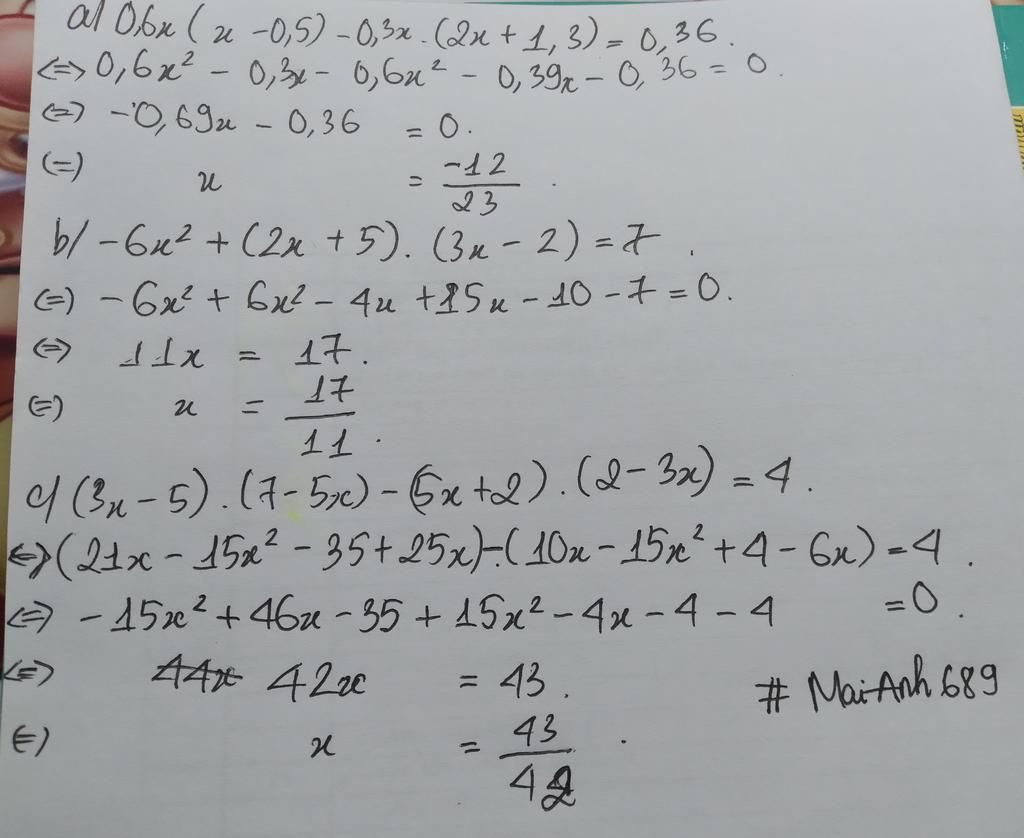 a/ 0,6x ( x - 0,5) - 0,3x . (2x + 1,3) = 0,36.
<=> 0,6x² - 0,3x - 0,6x² - 0,39x - 0,36 = 0.
<=> -0,69x - 0,36 = 0.
(=) x = -12/23 .
b/ -6x² + (2x + 5). (3x - 2) = 7 .
(=) -6x² + 6x² - 4x + 15x - 10 - 7 = 0.
<=> 11x = 17.
(=) x = 17/11 .
c/ (3x - 5). (7 - 5x) - (5x + 2). (2 - 3x) = 4 .
<=> (21x - 15x² - 35 + 25x) - (10x - 15x² + 4 - 6x) = 4 .
<=> -15x² + 46x - 35 + 15x² - 4x - 4 - 4 = 0 .
<=> 44x 42x = 43 .
# MaiAnh 689
(=) x = 43/42 .